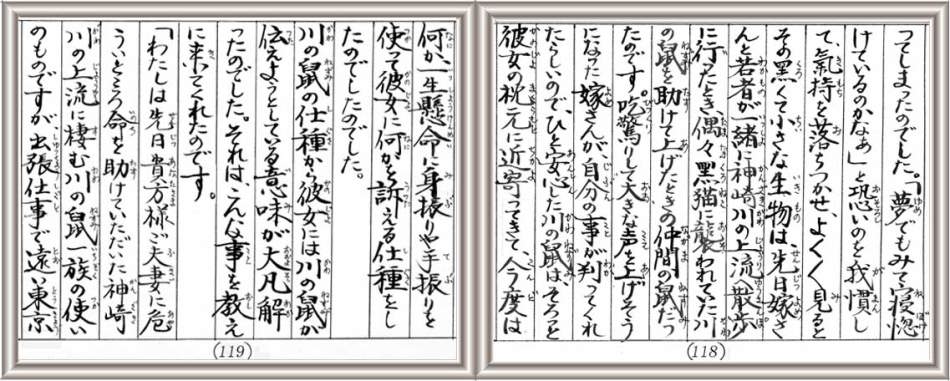 ってしまったのでした。「夢でもみて寝惚
けているのかなぁ」と恐いのを我慣し
て、氣持を落ちつかせ、よくよく見ると
その黒くて小さな生物は、先日嫁さ
んと若者が一緒に神崎川の上流散歩
に行ったとき、偶々黒猫に襲われていた川
の鼠を助けて上げたときの仲間の鼠だっ
たのです。吃驚りして大きな声を上げそう
になった嫁さんが自分の事が判ってくれ
たらしいので、ひと安心した川の鼠は、そろっと
彼女の枕元に近寄ってきて、今度は
(118)
何か一生懸命に身振りや手振りを
使って彼女に何かを訴える仕種をし
たのでした。
川の鼠の仕種から彼女には川の鼠が
伝えようとしている意味が大凡解
ったのでした。それは、こんな事を教え
に来てくれたのです。
「わたしは先日貴方様ご夫妻に危
ういところ命を助けていただいた神崎
川の上流に棲む川の鼠一族の使い
のものですが出張仕事で遠い東京
(119)